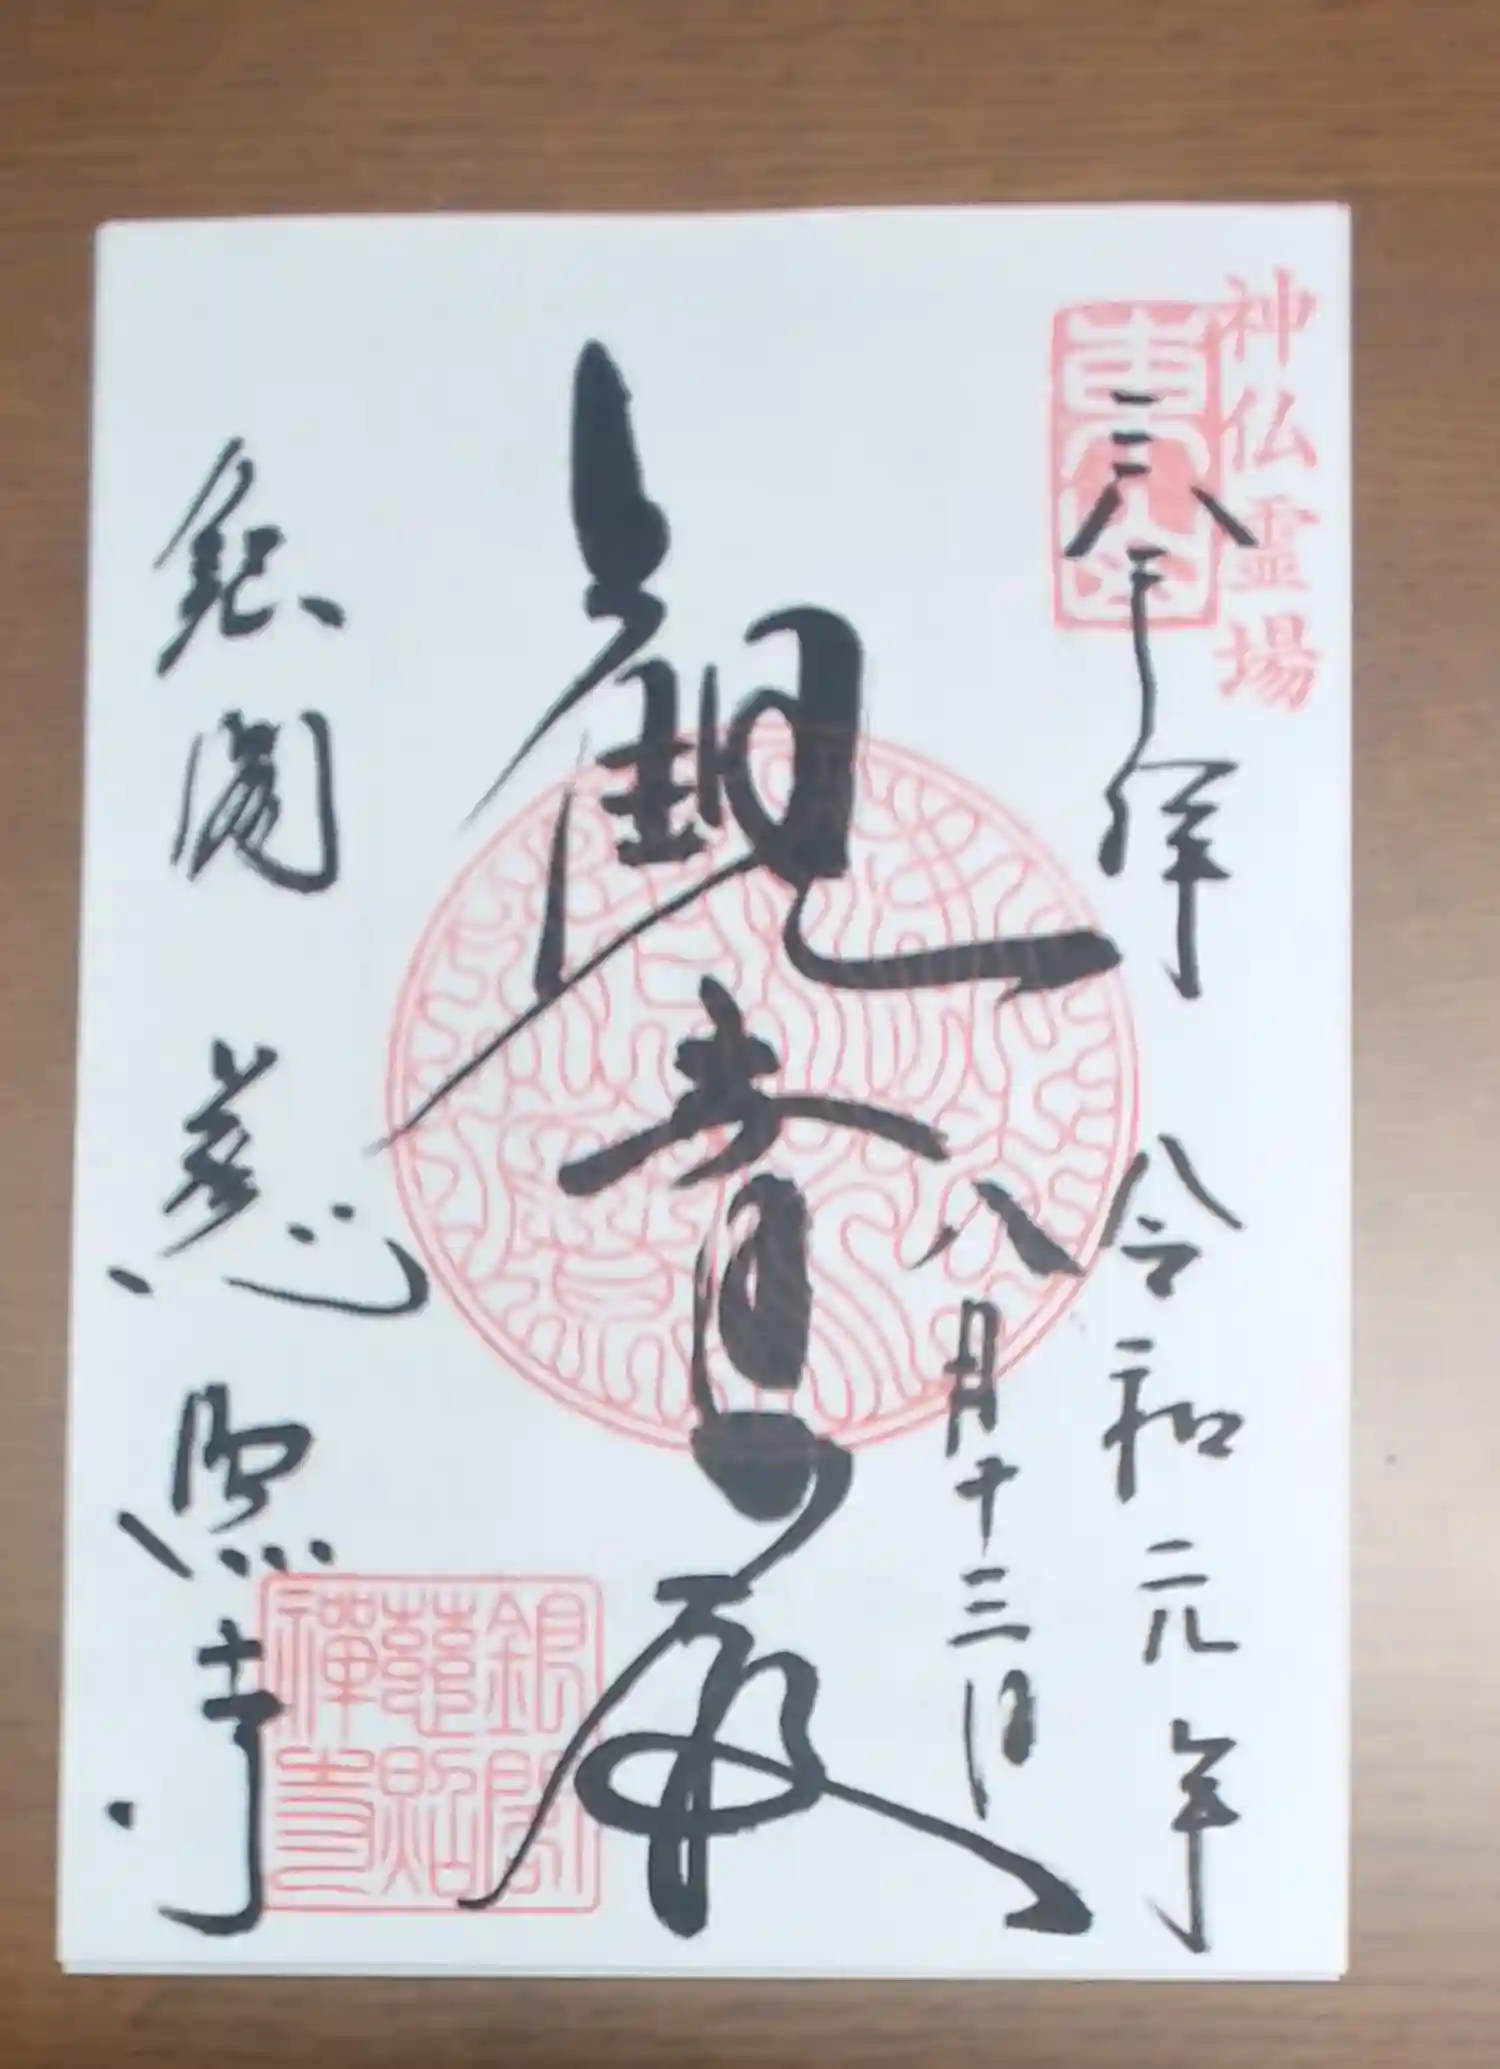 神仏霊場
奉拝
令和元年
八月十三日
観音殿
銀閣 慈照寺
銀閣
慈照
禅寺